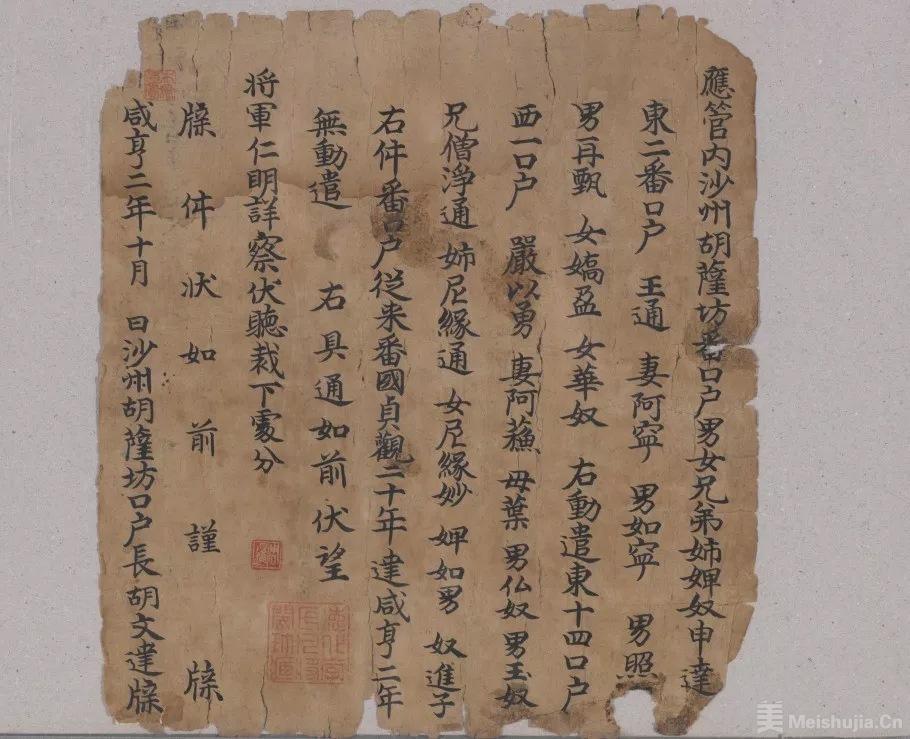 應管内沙州胡薩坊番口户男女兄弟姉婢奴申達
東二番口户 王通 妻阿寧 男如寧 男照
男再甄 女嬌盈 女華奴 右動遣東十四口户
西一口户 嚴以勇 妻阿蘓 母葉 男仏奴 男玉奴
兄僧淨通 姉尼緣通 女尼緣妙 婢如男 奴進子
右件番口户從来番國貞觀二十年達咸亨二年
無動遣 右具通如前伏望
将軍仁明詳察伏聽裁下處分
牒件狀如前謹 牒
咸亨二年十月 日沙州胡薩坊口户長胡文達牒
美 Meishujia.Cn